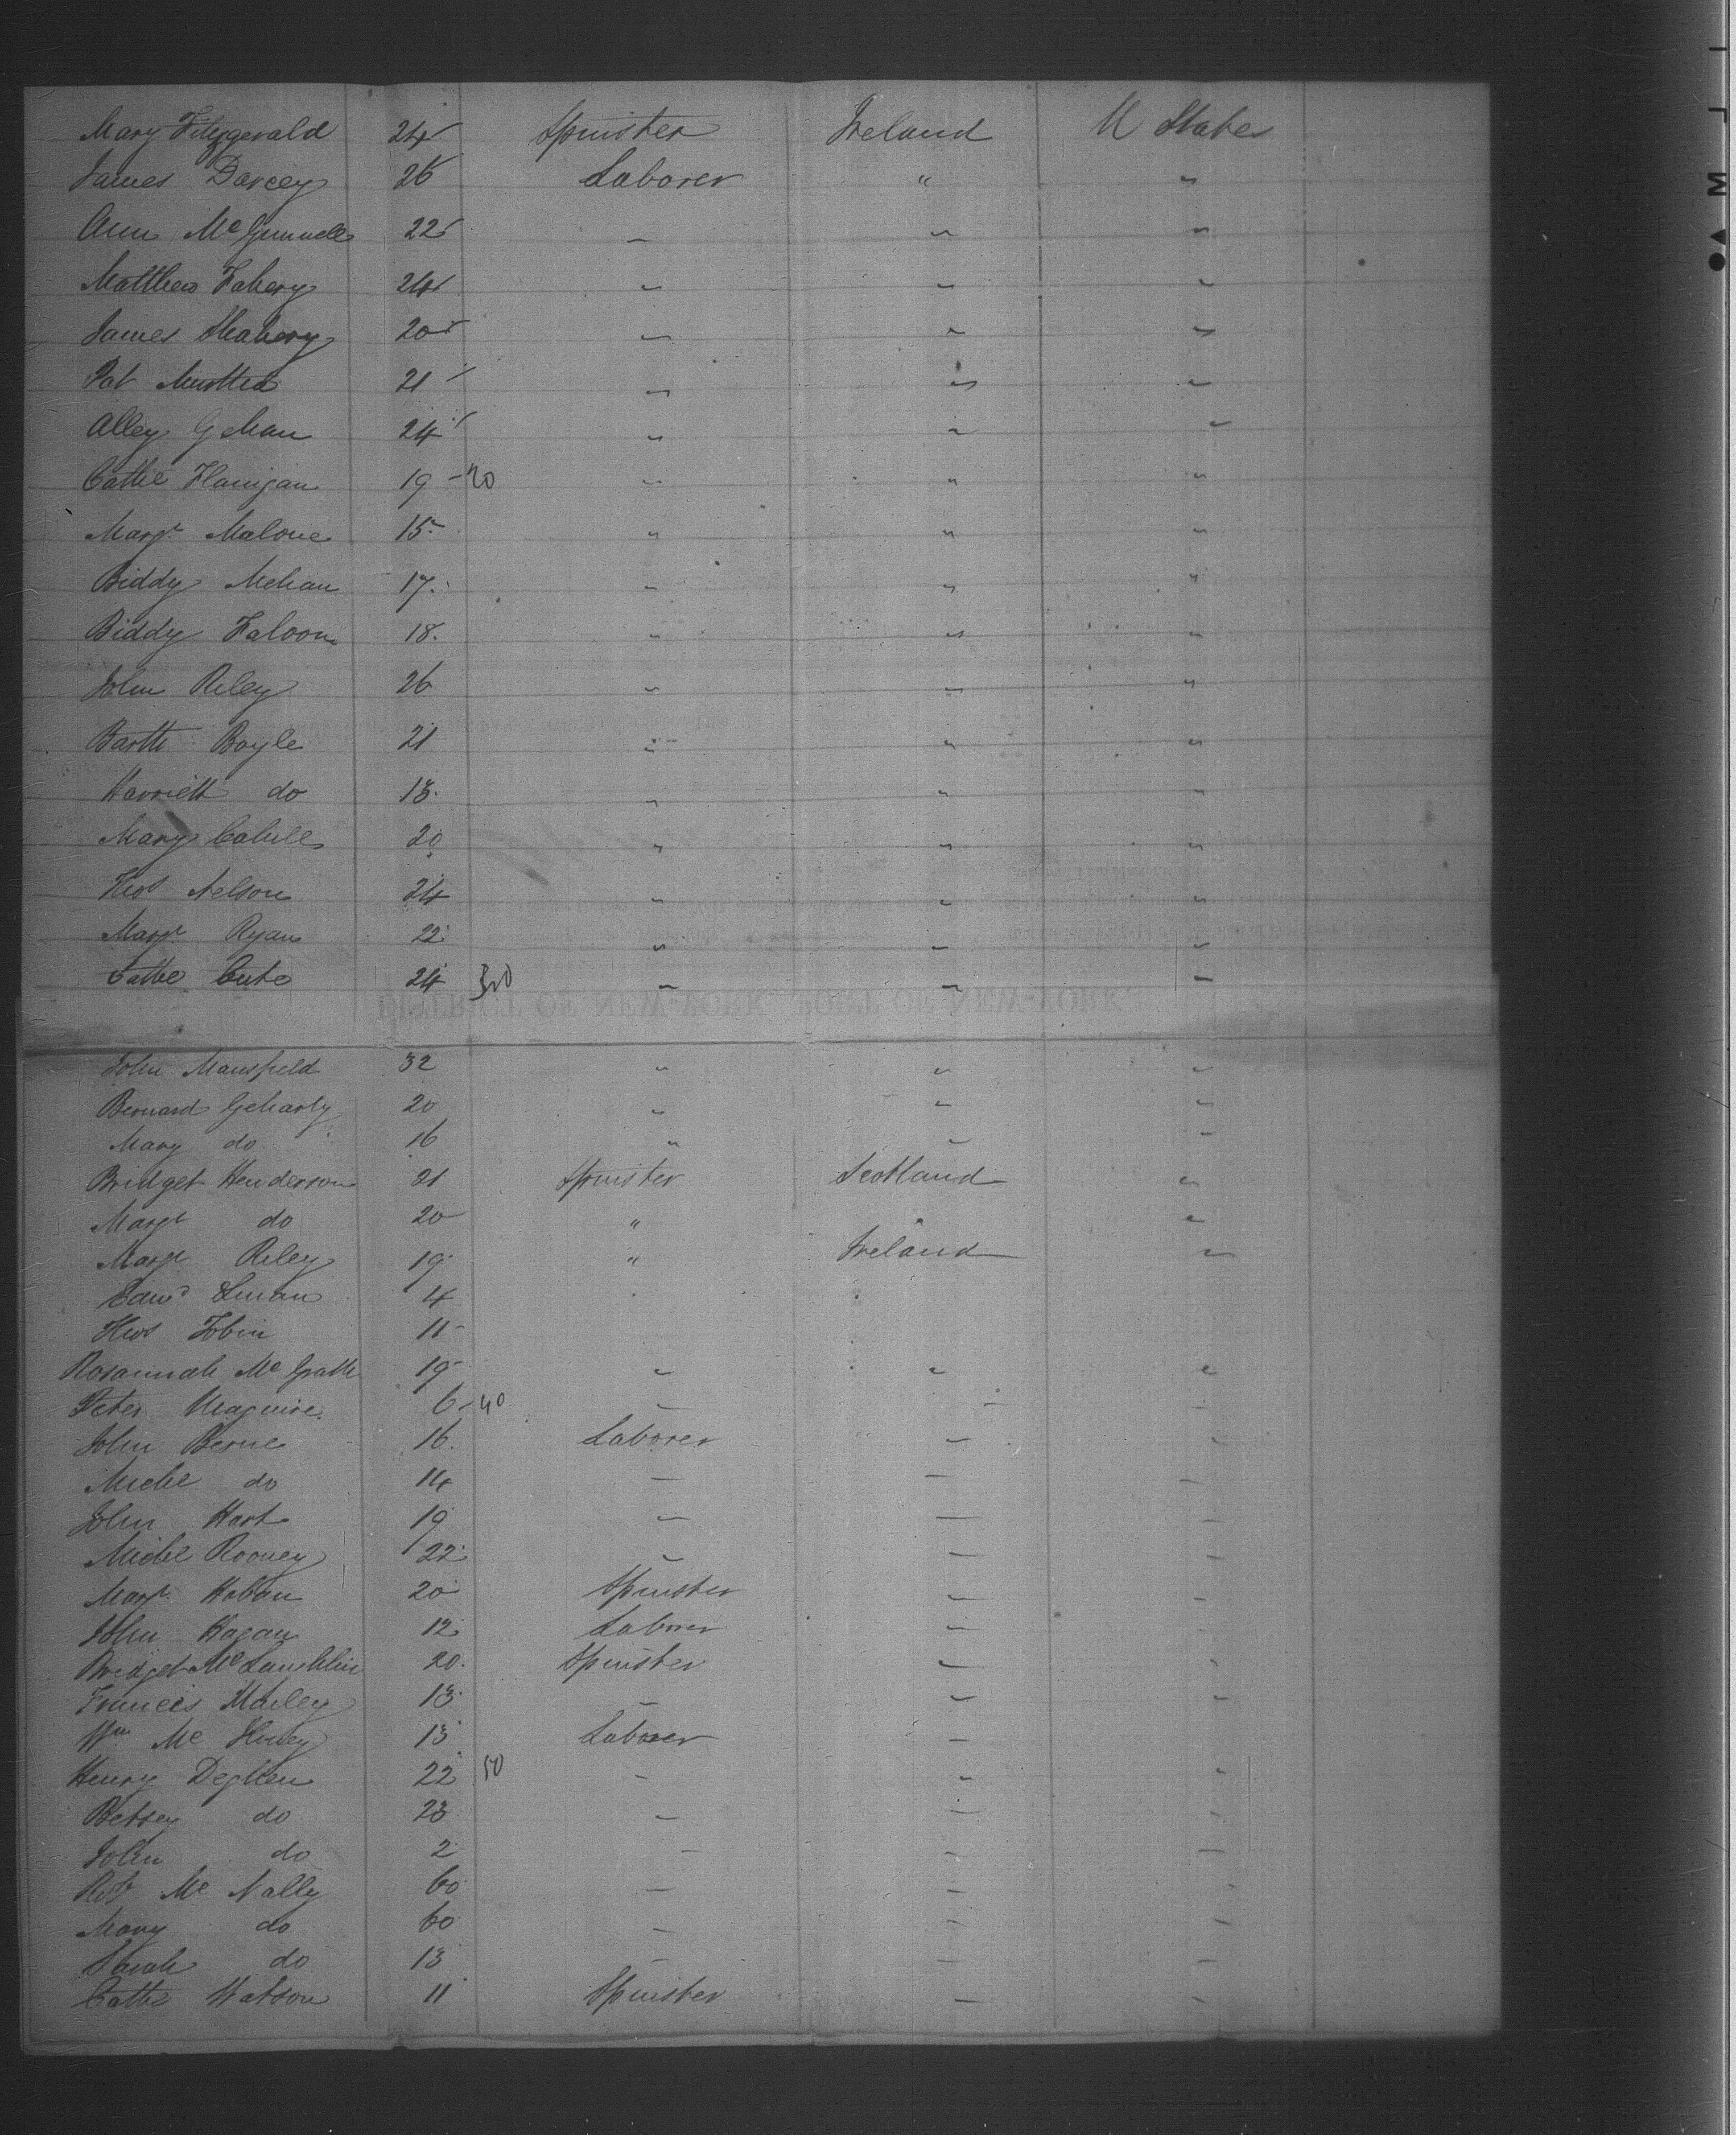 Mary Fitzgerald 24 Spinster Ireland U States
James Darcey 26 Laborer " "
Ann Mc Gunnell 22 " " "
Matthew Fahery 24 " " "
James Shahery 20 " " "
Pat 21 " " "
Alley Gehan 24 " " "
Cathe Flanigan 19 - 20 " " "
Margt Malone 15 " " "
Biddy Mehan 17 " " "
Biddy Faloon 18 " " "
John Riley 26 " " "
Barth Boyle 21 " " "
Harriett do 13 " " "
Mary Cahill 20 " " "
Thos Nelson 24 " " "
Margt Ryan 22 " " "
Cathe Cute 24 30 " " "
DISTRICT OF NEW-YORK PORT OF NEW-YORK
John Mansfield 32 " " "
Bernard Geharty 20 " " "
Mary do 16 " " "
Bridget Henderson 21 Spinster Scotland "
Margt do 20 " "
Margt Riley 19 " Ireland "
Edwd 4
Thos Tobin 11
Rosannah Mc Grath 19 " " "
Peter Maguire 6 - 40 " " "
John Berne 16 Laborer " "
Michl do 14 " " "
John Hart 19 " " "
Michl Rooney 22 " " "
Margt Hoban 20 Spinster " "
John Hagan 12 Laborer "
Bridget Mc Laughlin 20 Spinster " "
Francis Marley 13 " " "
Wm Mc 13 Laborer "
Henry Deghen 22 50 " " "
Betsey do 23 " " "
John do 2 " " "
Robt Mc Nally 60 " " "
Mary do 60 " " "
Sarah do 13 " " "
Cathe Watson 11 Spinster " "